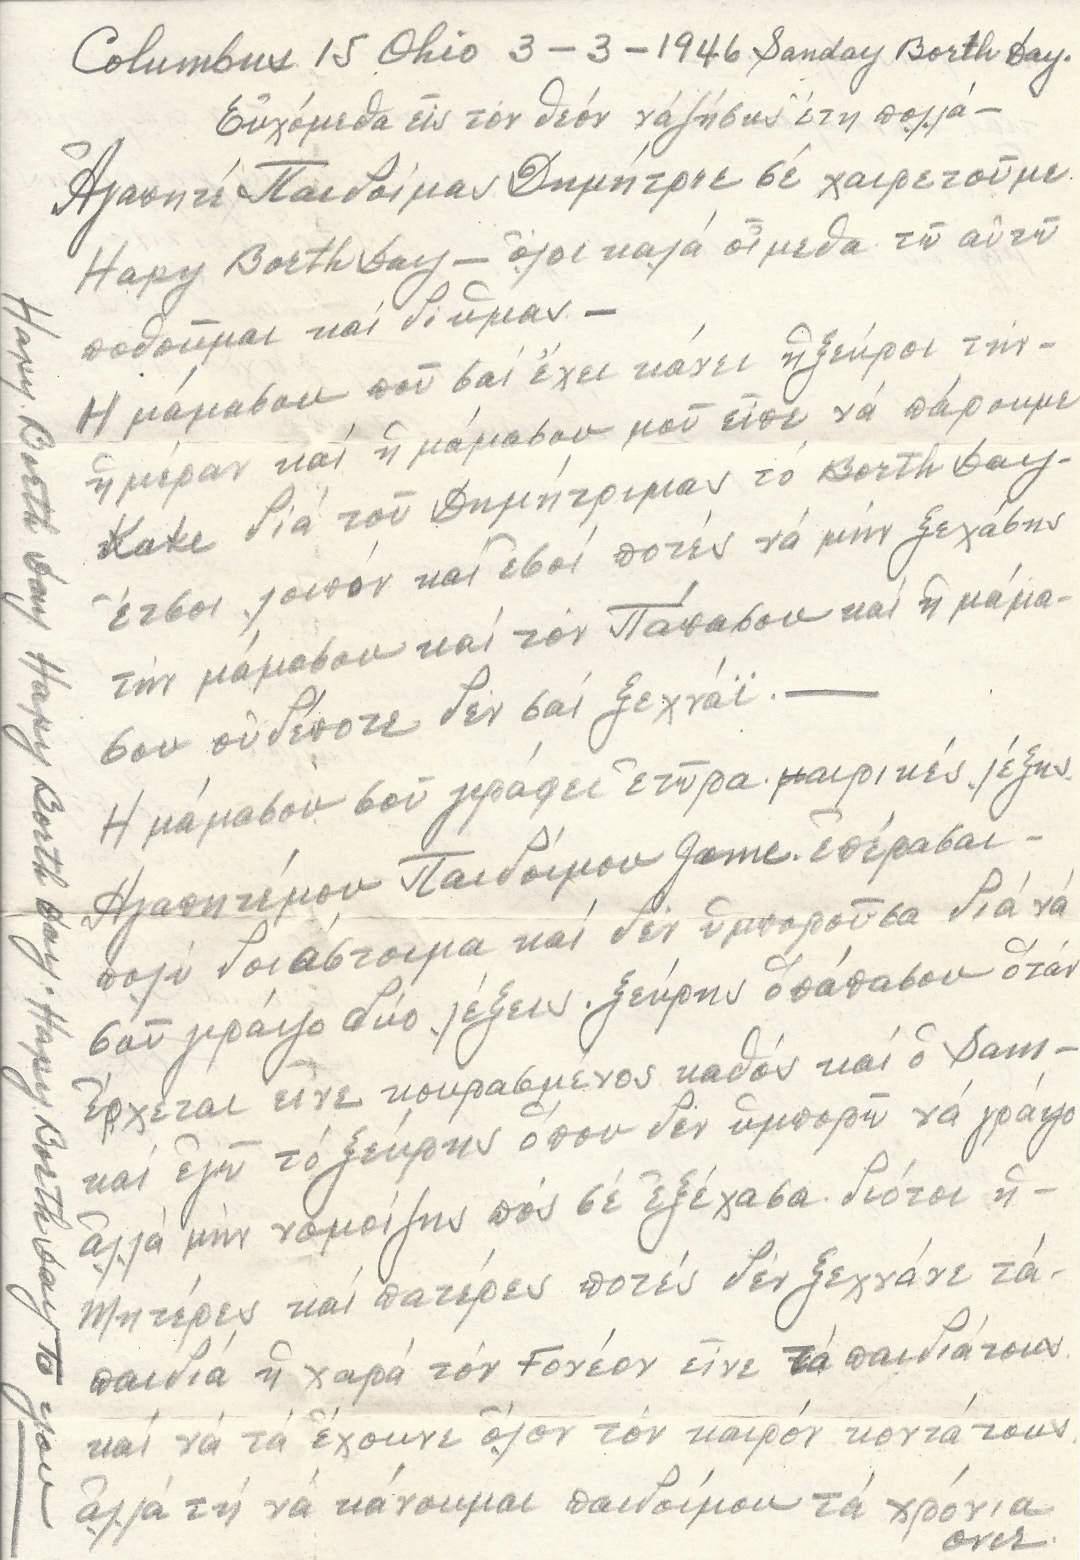 Columbus 15 Ohio 3-3-1946 Sanday Borth Day.
Εὐχόμεθα εἰς τόν θεόν νάζήσης ἔτη πολλά—
Ἀγαπητέ Παιδοίμας Δημήτριε σέ χαιρετοῦμε.
Hapy Borth Day— ὅλοι καλά οἴμεθα τῶ αὐτῶ
ποθοῦμαι καί δι ὕμας.—
Η μάμασου ποῦ σαί ἔχει κάνει ἥξευροι τήν-
ἡμέραν καί ἡ μάμασου μοῦ εἶπε νά πάρουμε
Kake διά τοῦ Δημήτριμας τό Borth Day-
ἔτσοι λοιπόν καί ἐσοί ποτές νά μήν ξεχάσης
τήν μάμασου καί τόν Πάπασου καί ἡ μάμα-
σου οὐδέποτε δέν σαί ξεχνάϊ.—
Η μάμασου σοῦ γράφει ἐτῶρα μαιρικές λέξης.
Ἀγαπητέμου Παιδοίμου Jame. ἐπέρασαι-
πολύ δοιάστοιμα καί δέν ὑμποροῦσα διά νά
σοῦ γράψο δύο λέξεις. ξεύρης ὁπάπασου ὅταν
ἔρχεται εἶνε κουρασμένος καθός καί ὁ Sam-
καί ἐγῶ τό ξεύρης ὅπου δέν ὑμπορῶ νά γράψο
ἀλλά μήν νομοίζης πός σέ ἐξέχασα. διότοι ἡ-
Μητέρες καί πατέρες ποτές δέν ξεχνάνε τά-
παιδιά ἡ χαρά τόν Γονέον εἶνε τά παιδιάτους.
καί νά τά ἔχουνε ὅλον τόν καιρόν κοντάτους.
ἀλλά τή νά κάνουμαι παιδοίμου τά χρόνια
over.
Hapy. Borth Day Hapy Borth Day. Hapy Borth Day To you